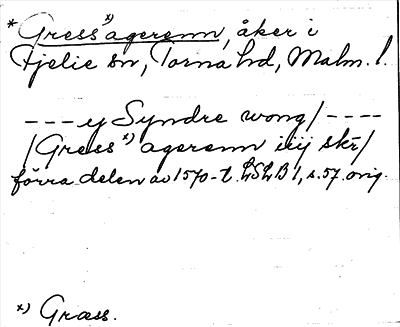 * Gress x) agerenn, åker i
Fjelie sn, Torna hd, Malm. l.
--- y Syndre wong/ ----
/Gress x) agerenn iiij skr/
förra delen av 1570-t. LSLB 1, s. 57. orig.
x) Græss.